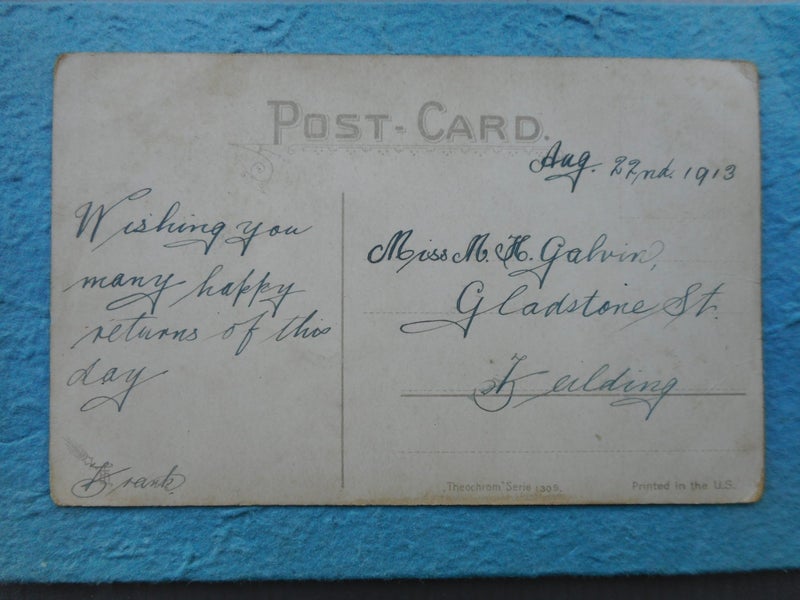 POST-CARD.
Aug. 22nd. 1913
Wishing you
many happy
returns of this
day
Frank.
Miss M. H. Galvin,
Gladstone St.
Feilding
"Theochrom" Serie 1309.
Printed in the U.S.